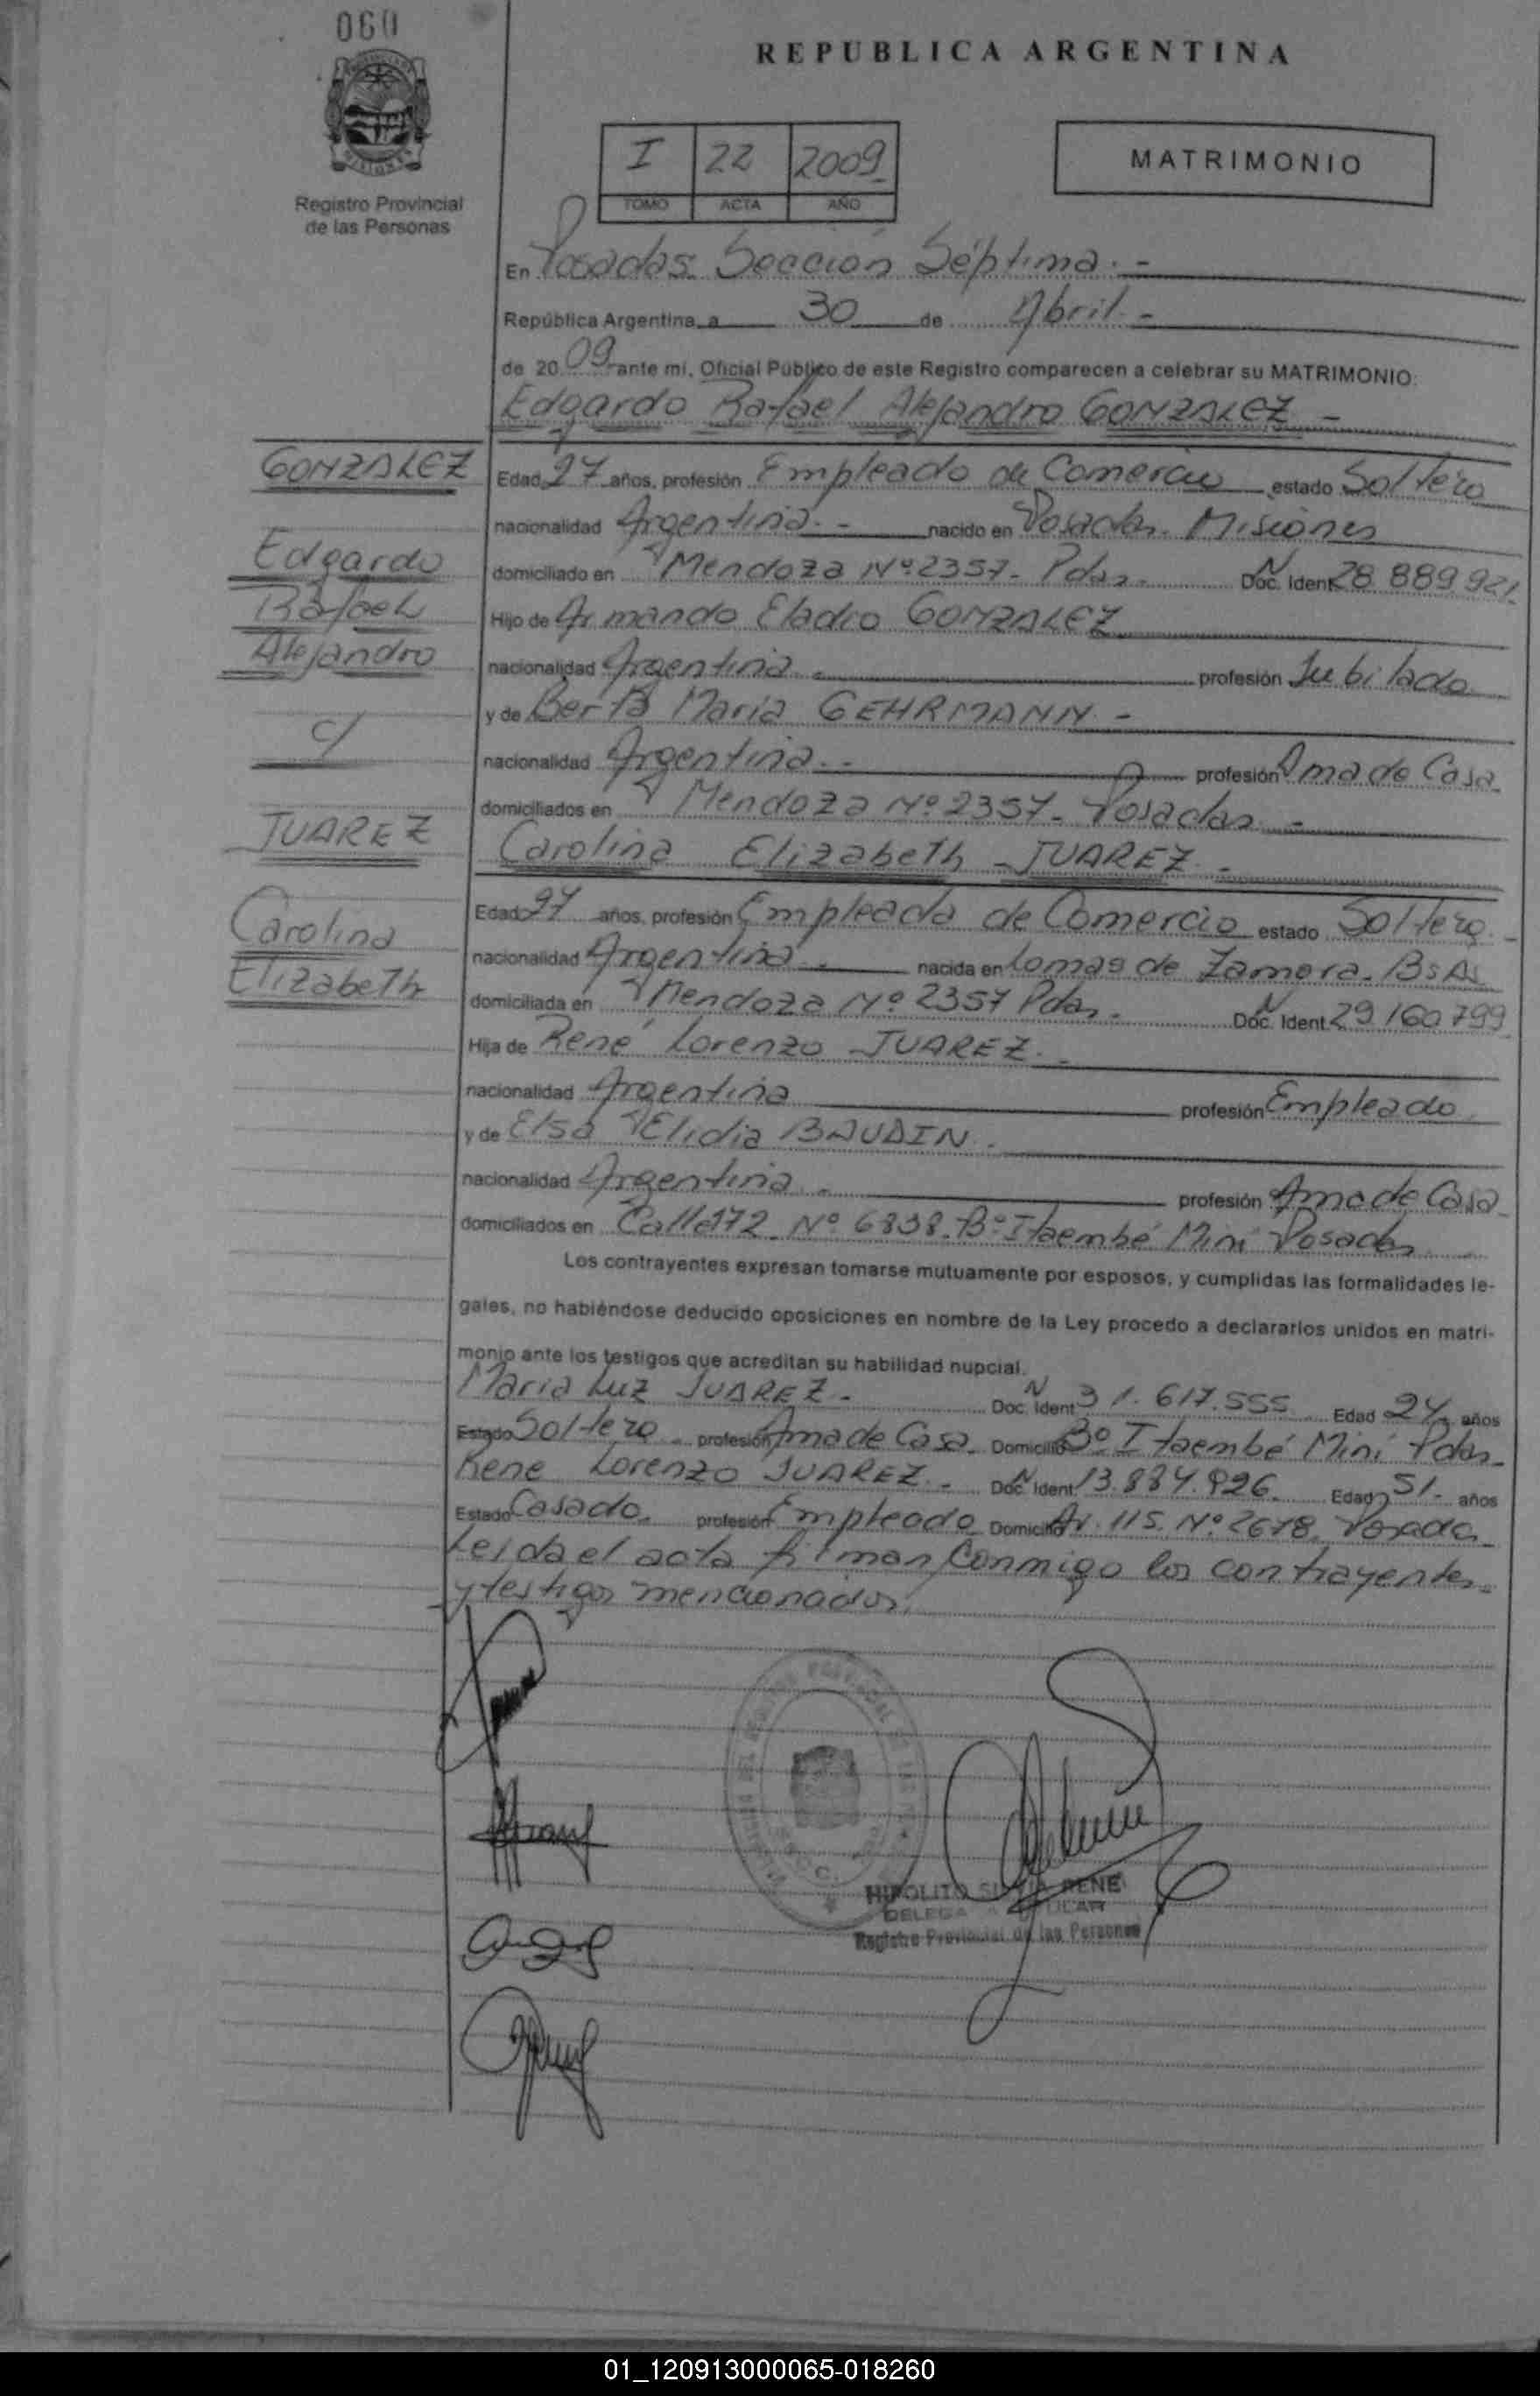 060
REPUBLICA ARGENTINA
I 22 2009
TOMO ACTA AÑO
MATRIMONIO
Registro Provincial
de las Personas
En Posadas Sección Séptima.-
República Argentina, a 30 de Abril.-
de 2009 ante mi, Oficial Público de este Registro comparecen a celebrar su MATRIMONIO:
Edgardo Rafael Alejandro GONZALEZ -
GONZALEZ
Edad 27 años, profesión Empleado de Comercio estado Soltero
nacionalidad Argentina.- nacido en Posadas. Misiones
Edgardo
domiciliado en Mendoza Nº 2357- Pdas. Doc. Ident. N 28.889.921.
Rafael
Hijo de Armando Eladio GONZALEZ
Alejandro
nacionalidad Argentina. profesión Jubilado
y de Berta Maria GEHRMANN.-
c/
nacionalidad Argentina.- profesión Ama de Casa
domiciliados en Mendoza Nº 2357- Posadas.-
JUAREZ
Carolina Elizabeth JUAREZ.-
Edad 27 años, profesión Empleada de Comercio estado Soltera
Carolina
nacionalidad Argentina. nacida en Lomas de Zamora. BsAs.
Elizabeth
domiciliada en Mendoza Nº 2357 Pdas. Doc. Ident. N 29.160.799
Hija de René Lorenzo JUAREZ.-
nacionalidad Argentina profesión Empleado
y de Elsa Elidia BAUDIN.
nacionalidad Argentina. profesión Ama de Casa
domiciliados en Calle 172 Nº 6838. Bº Itaembé Miní Posadas
Los contrayentes expresan tomarse mutuamente por esposos, y cumplidas las formalidades le-
gales, no habiéndose deducido oposiciones en nombre de la Ley procedo a declararlos unidos en matri-
monio ante los testigos que acreditan su habilidad nupcial.
Maria Luz JUAREZ.- Doc. Ident. N 31.617.555 Edad 24 años
Estado Soltera profesión Ama de Casa Domicilio Bº Itaembé Miní Pdas.
Rene Lorenzo JUAREZ.- Doc. Ident. N 13.884.926. Edad 51- años
Estado Casado. profesión Empleado Domicilio Av. 115. Nº 2678. Posadas
Leida el acta firman conmigo los contrayentes
y testigos mencionados.
HIPOLITO RENE
Registro Provincial de las Personas
01_120913000065-018260